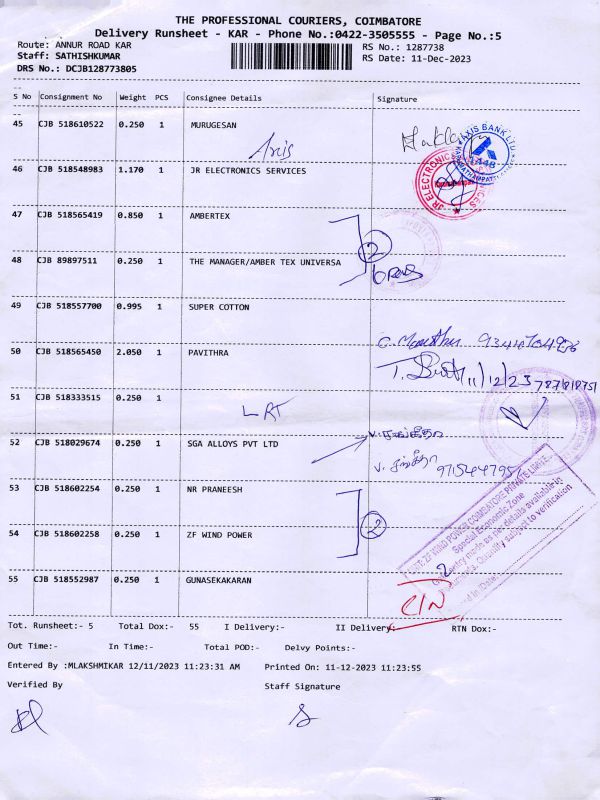 THE PROFESSIONAL COURIERS, COIMBATORE
Delivery Runsheet - KAR - Phone No.:0422-3505555 - Page No.:5
Route: ANNUR ROAD KAR
RS No.: 1287738
Staff: SATHISHKUMAR
RS Date: 11-Dec-2023
DRS No.: DCJB128773805
S No Consignment No Weight PCS Consignee Details Signature
45 CJB 518610522 0.250 1 MURUGESAN
Axis
AXIS BANK LTD
1448
46 CJB 518548983 1.170 1 JR ELECTRONICS SERVICES
JR ELECTRONICS SERVICES
47 CJB 518565419 0.850 1 AMBERTEX
2
48 CJB 89897511 0.250 1 THE MANAGER/AMBER TEX UNIVERSA
49 CJB 518557700 0.995 1 SUPER COTTON
50 CJB 518565450 2.050 1 PAVITHRA
11/12/23
51 CJB 518333515 0.250 1
LRT
52 CJB 518029674 0.250 1 SGA ALLOYS PVT LTD
53 CJB 518602254 0.250 1 NR PRANEESH
2
54 CJB 518602258 0.250 1 ZF WIND POWER
ZF WIND POWER COIMBATORE PRIVATE LIMITED
Special Economic Zone
entry made as per details available in
Quantity subject to verification
55 CJB 518552987 0.250 1 GUNASEKAKARAN
2
C/N
Tot. Runsheet:- 5 Total Dox:- 55 I Delivery:- II Delivery:- RTN Dox:-
Out Time:- In Time:- Total POD:- Delvy Points:-
Entered By :MLAKSHMIKAR 12/11/2023 11:23:31 AM Printed On: 11-12-2023 11:23:55
Verified By Staff Signature